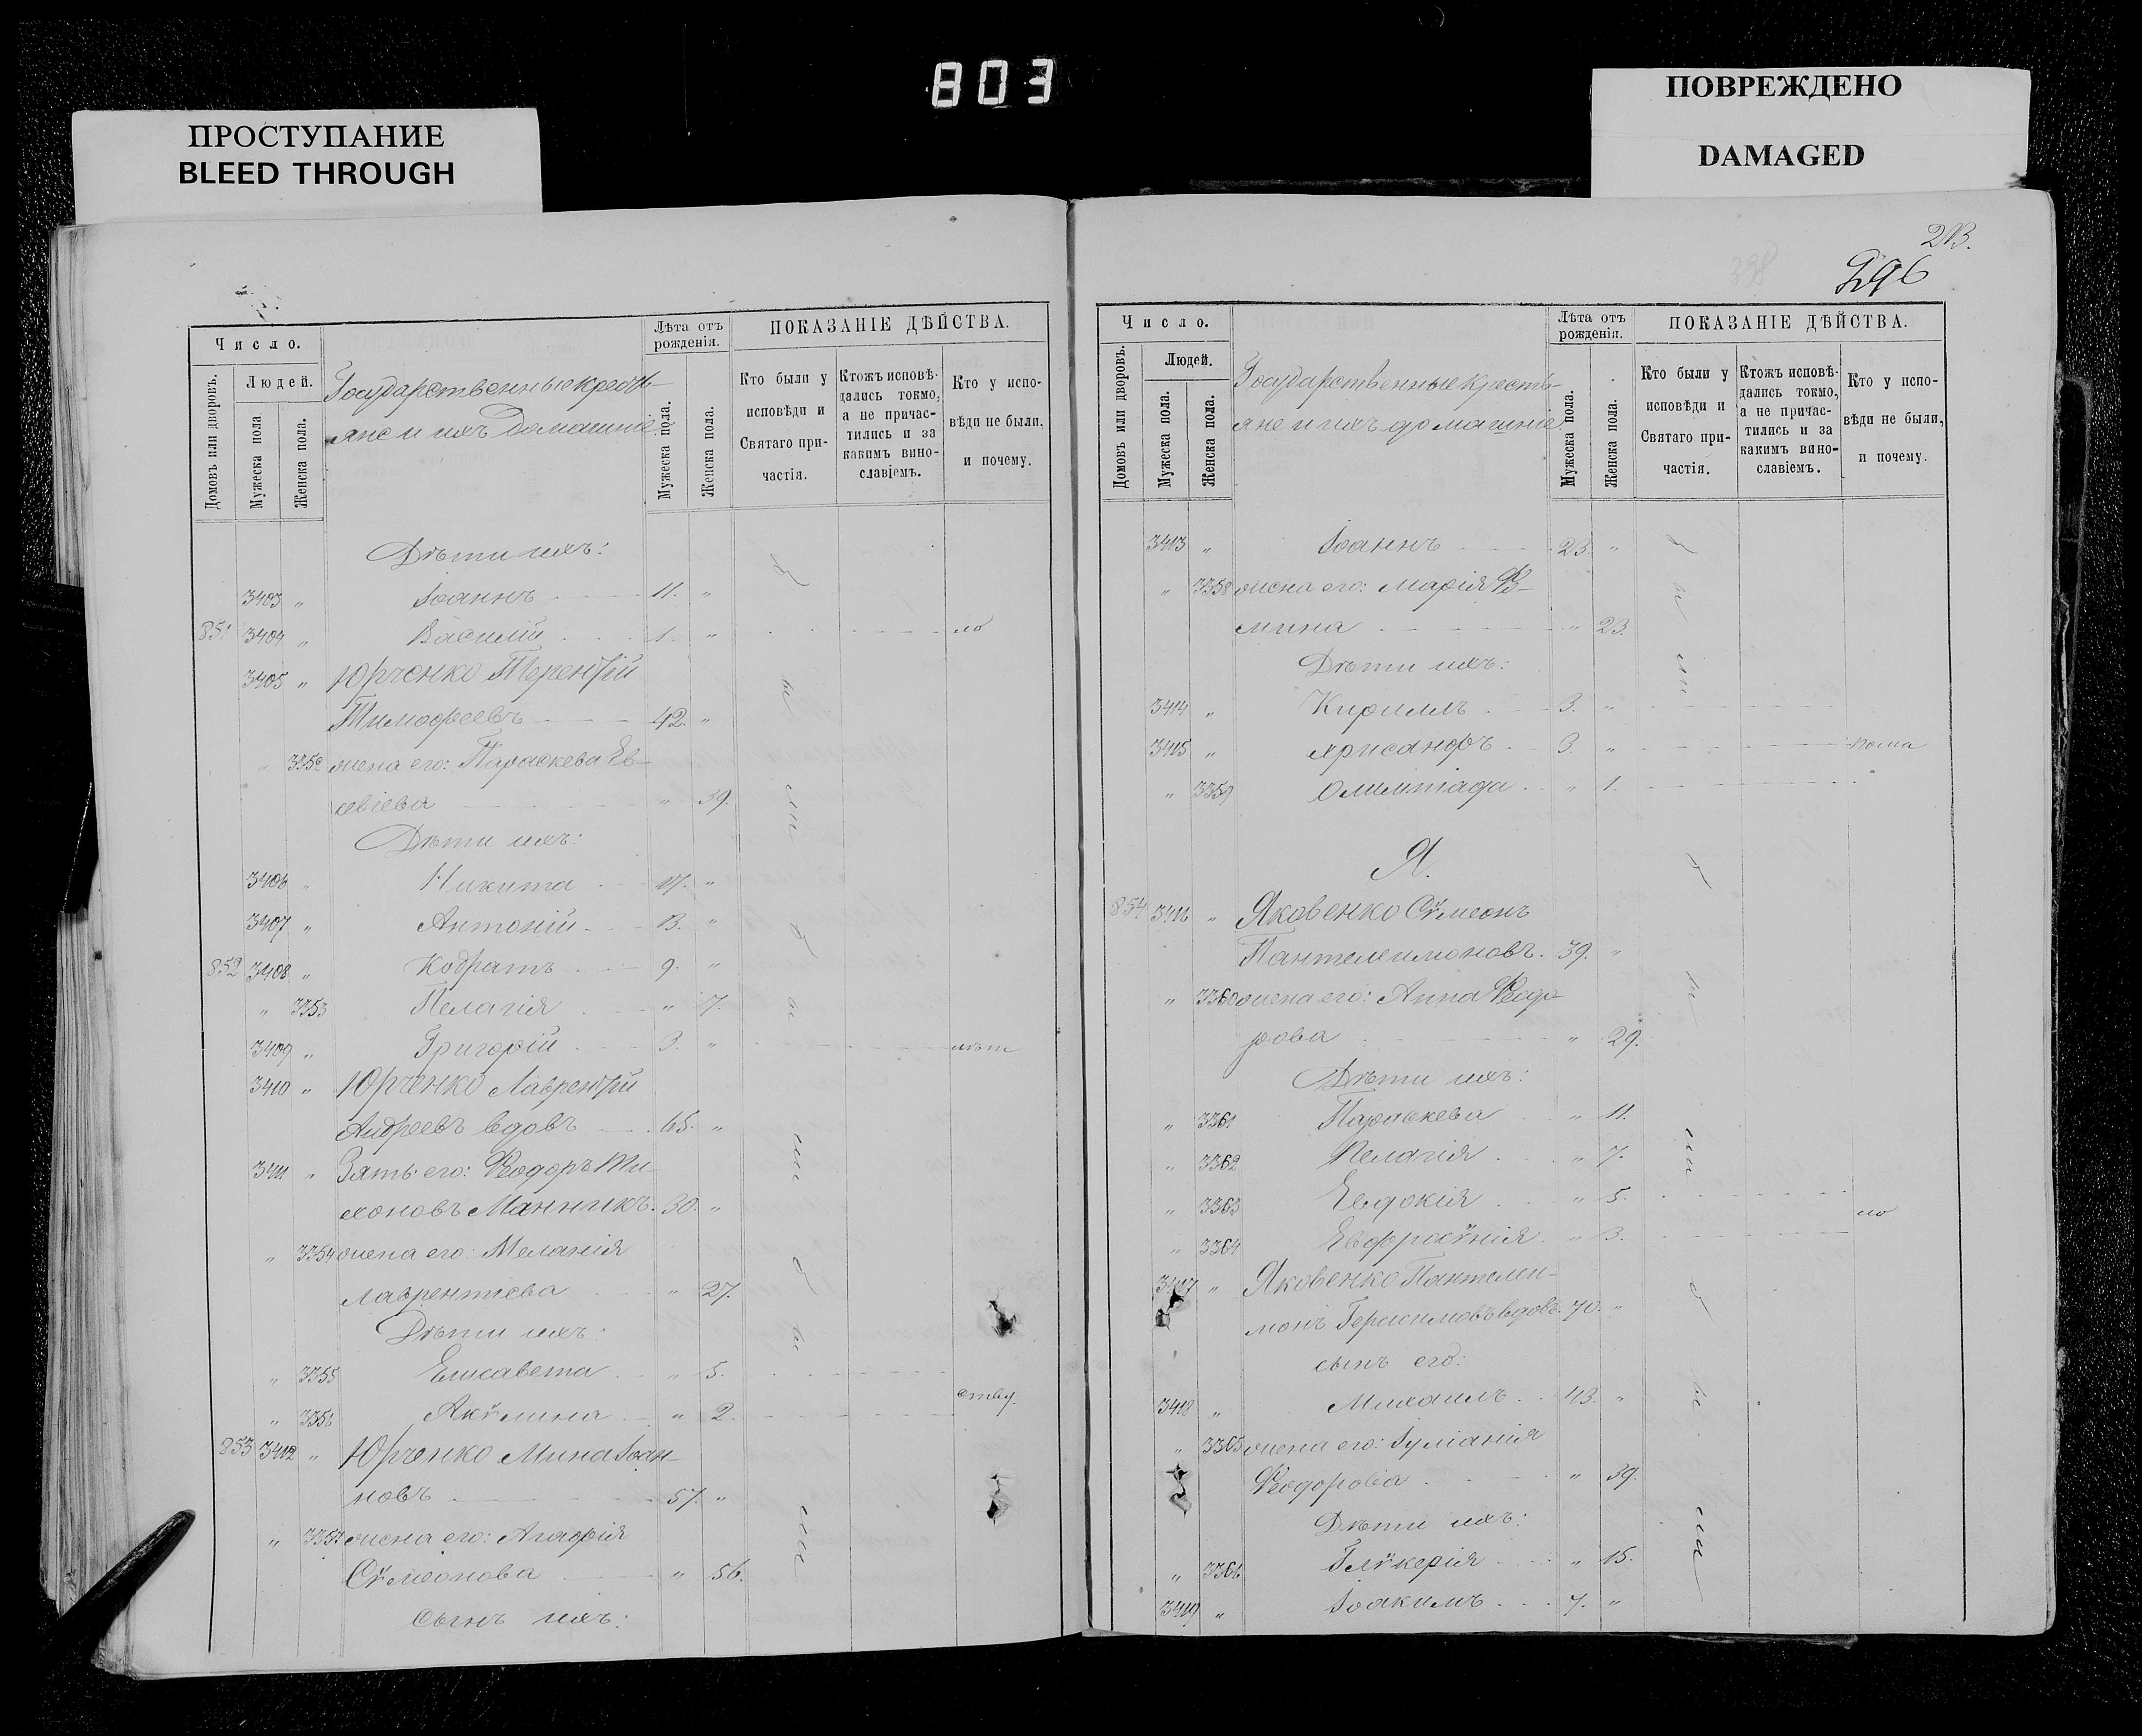 803
ПРОСТУПАНИЕ
BLEED THROUGH
ПОВРЕЖДЕНО
DAMAGED
Число.
Домовъ или дворовъ.
Людей.
Мужеска пола
Женска пола.
Государственные кресть-
яне и ихъ домашніе.
Лѣта отъ рожденія.
Мужеска пола.
Женска пола.
ПОКАЗАНІЕ ДѢЙСТВА.
Кто были у исповѣди и Святаго при-частія.
Ктожъ исповѣ-дались токмо, а не причас-тились и за какимъ вино-славіемъ.
Кто у испо-вѣди не были, и почему.
Дѣти ихъ:
3403 „ Іоаннъ 11. „
851 3404 „ Василій 1. „ по
3405 „ Юрченко Терентій
Тимофеевъ 42. „
„ 3352 жена его: Параскева Ев-
фіева „ 39.
Дѣти ихъ:
3406 „ Никита 17. „
3407 „ Антоній 13. „
852 3408 „ Кодратъ 9. „
„ 3353 Пелагія „ 7.
3409 „ Григорій 3. „
3410 „ Юрченко Лаврентій
Андреевъ вдовъ 65. „
3411 „ Зять его: Ѳеодоръ Ти-
хоновъ Манникъ. 30. „
„ 3354 жена его: Меланія
Лаврентіева „ 27.
Дѣти ихъ:
„ 3355 Елисавета „ 5.
„ 3356 Акѵлина „ 2. ству.
853 3412 „ Юрченко Мина Іоан-
новъ 57. „
„ 3357 жена его: Агафія
Сѵмеонова „ 56.
сынъ ихъ:
213.
296
Число.
Домовъ или дворовъ.
Людей.
Мужеска пола.
Женска пола.
Государственные кресть-
яне и ихъ домашніе.
Лѣта отъ рожденія.
Мужеска пола.
Женска пола.
ПОКАЗАНІЕ ДѢЙСТВА.
Кто были у исповѣди и Святаго при-частія.
Ктожъ исповѣ-дались токмо, а не причас-тились и за какимъ вино-славіемъ.
Кто у испо-вѣди не были, и почему.
3413 „ Іоаннъ 23. „
„ 3358 жена его: Марія Ѳо-
мина „ 23.
Дѣти ихъ:
3414 „ Кириллъ 3. „
3415 „ Хрисанфъ 3. „
„ 3359 Олимпіада „ 1.
Я.
854 3416 „ Яковенко Сѵмеонъ
Пантелеимоновъ. 39. „
„ 3360 жена его: Анна Ѳеодо-
рова „ 29.
Дѣти ихъ:
„ 3361 Параскева „ 11.
„ 3362 Пелагія „ 7.
„ 3363 Евдокія „ 5.
„ 3364 Евфросѵнія „ 3. по
3417 „ Яковенко Пантелеи-
монъ Герасимовъ вдовъ. 70. „
сынъ его:
3418 „ Михаилъ 43. „
„ 3365 жена его: Іуліанія
Ѳеодорова „ 39.
Дѣти ихъ:
„ 3366 Глѵкерія „ 15.
3419 „ Іоакимъ 7. „